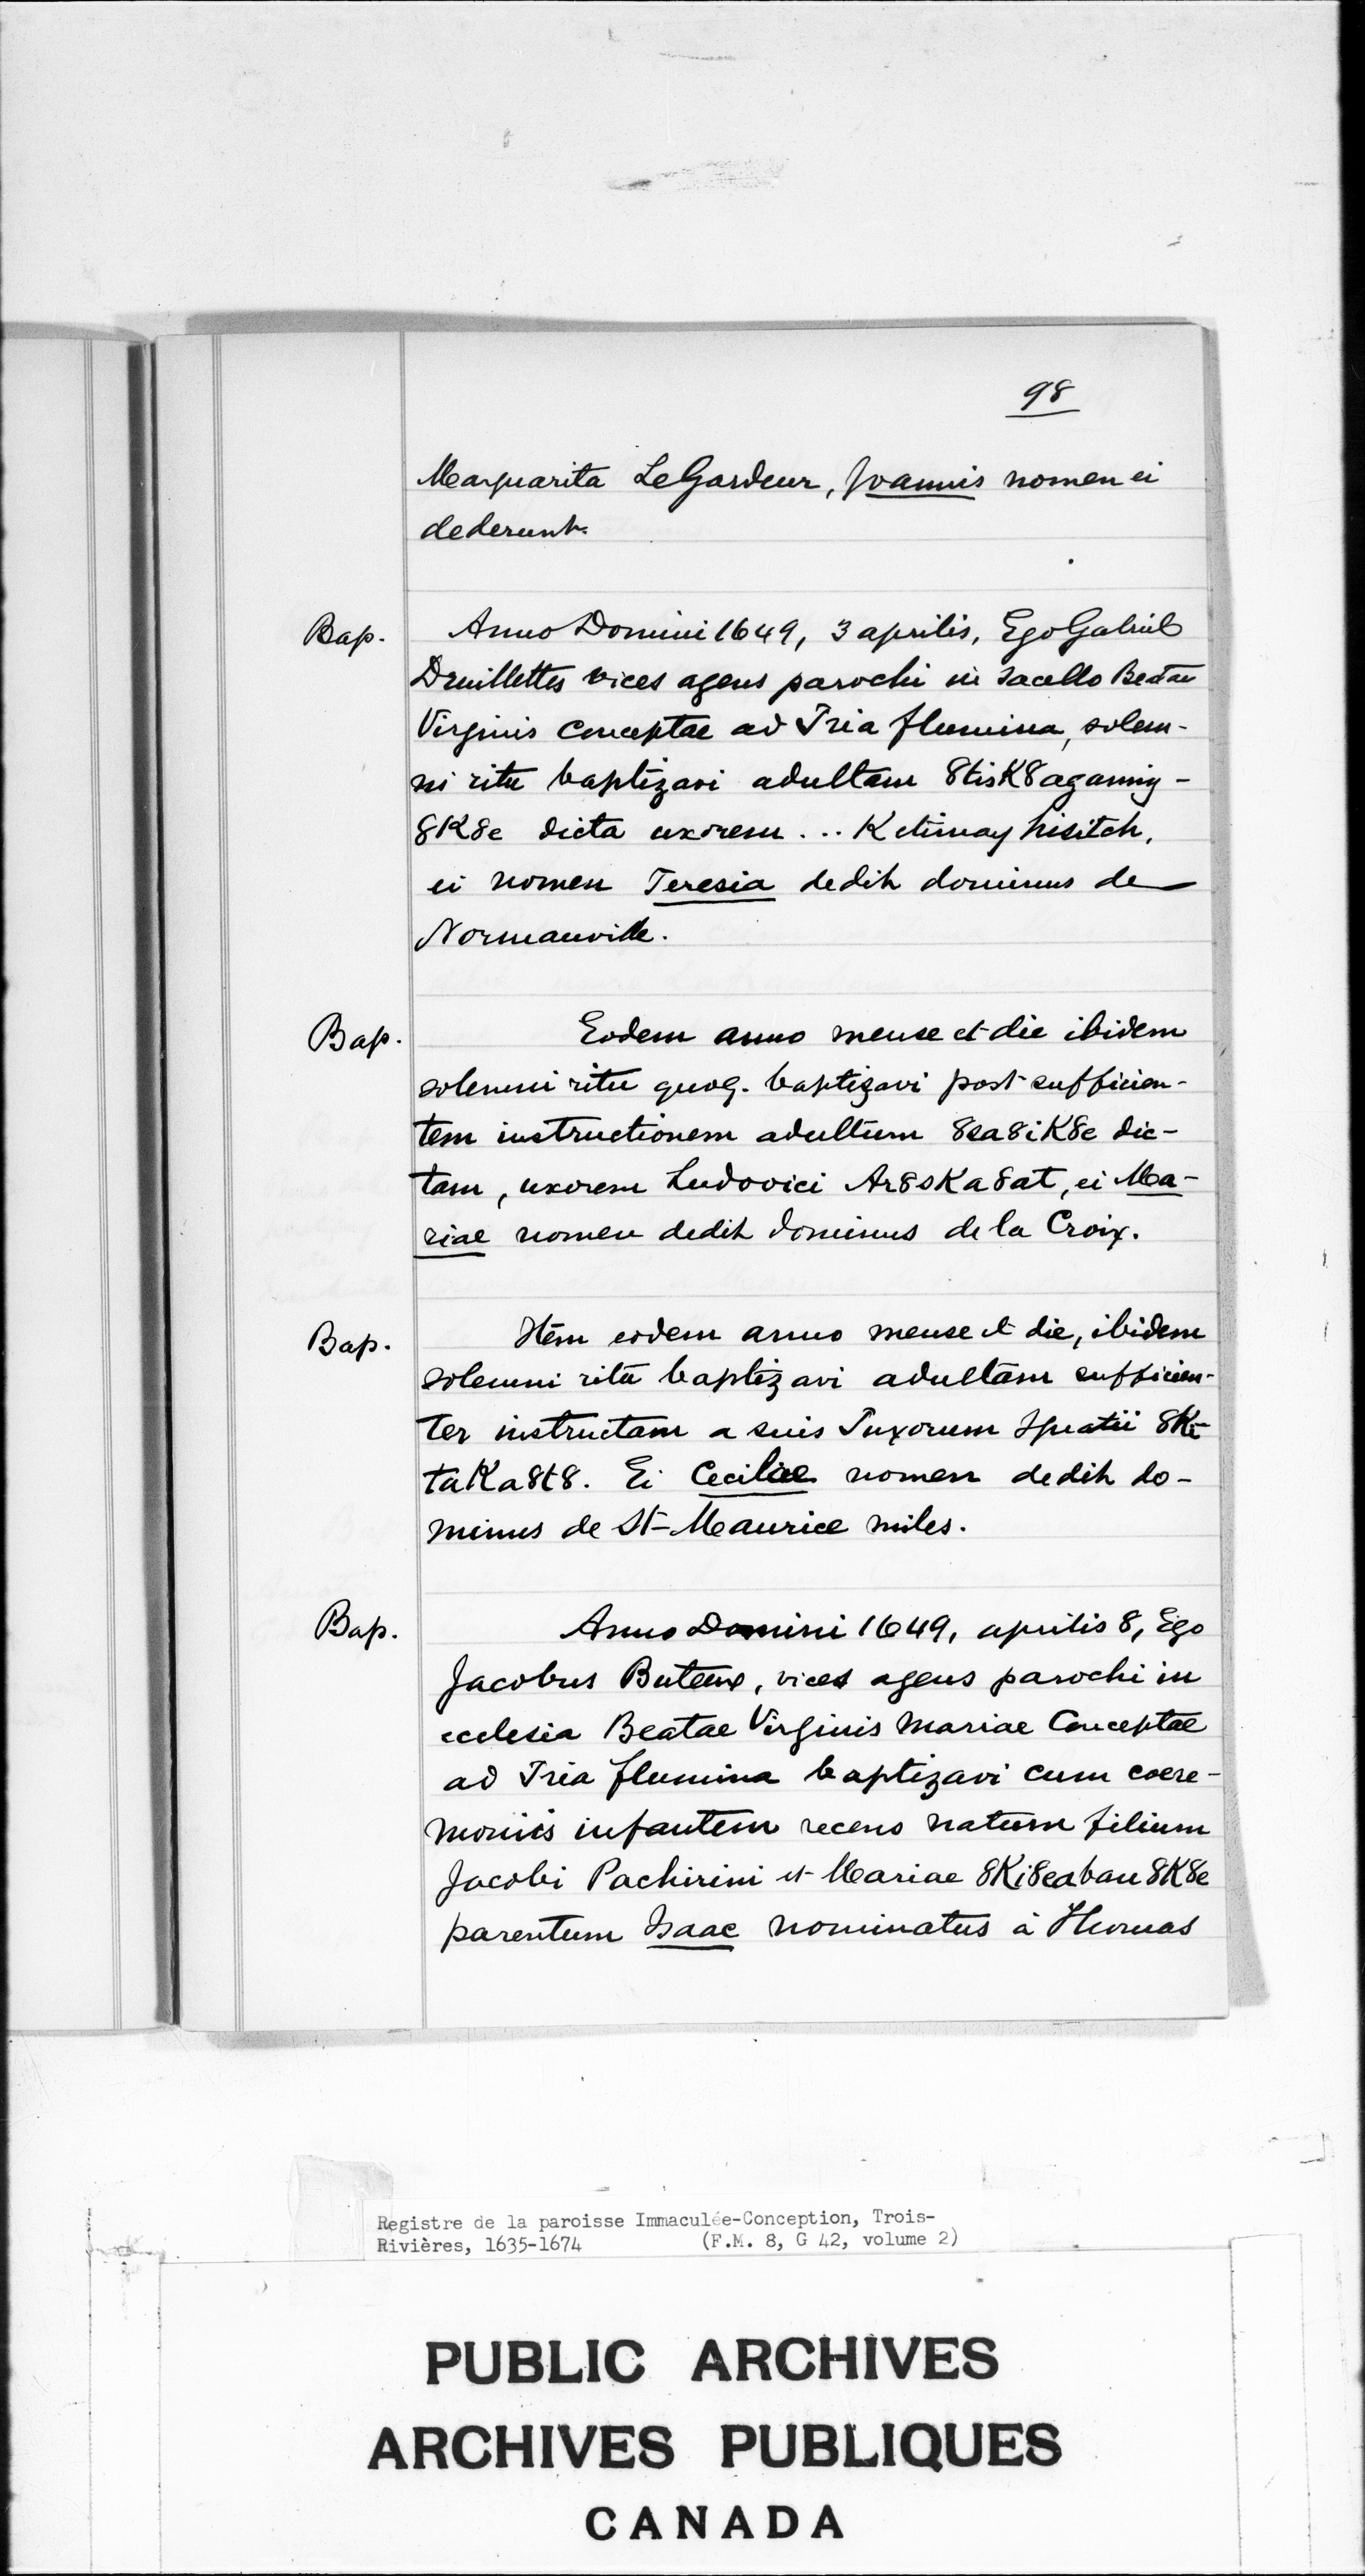 98
Marguarita LeGardeur, Joannis nomen ei
dederunt.
Bap. Anno Domini 1649, 3 aprilis, Ego Gabriel
Druillettes vices agens parochi in sacello Beatae
Virginis Conceptae ad Tria flumina, solem-
ni ritu baptizavi adultam 8tisK8agaming-
8K8e dicta uxorem ... Ketimay hisitch,
ei nomen Teresia dedit dominus de
Normanville.
Bap. Eodem anno mense et die ibidem
solemni ritu quoq. baptizavi post sufficien-
tem instructionem adultum 8ea8iK8e dic-
tam, uxorem Ludovici Ar8sKa8at, ei Ma-
riae nomen dedit dominus de la Croix.
Bap. Item eodem anno mense et die, ibidem
solemni ritu baptizavi adultam sufficien-
ter instructam a suis Iuxorum Ignatii 8Ki-
taKa8t8. Ei Ceciliae nomen dedit do-
minus de St-Maurice miles.
Bap. Anno Domini 1649, aprilis 8, Ego
Jacobus Buteux, vices agens parochi in
ecclesia Beatae Virginis Mariae Conceptae
ad Tria flumina baptizavi cum coere-
moniis infantem recens natum filium
Jacobi Pachirini et Mariae 8Ki8eaban8K8e
parentum Isaac nominatus à Thomas
Registre de la paroisse Immaculée-Conception, Trois-
Rivières, 1635-1674 (F.M. 8, G 42, volume 2)
PUBLIC ARCHIVES
ARCHIVES PUBLIQUES
CANADA